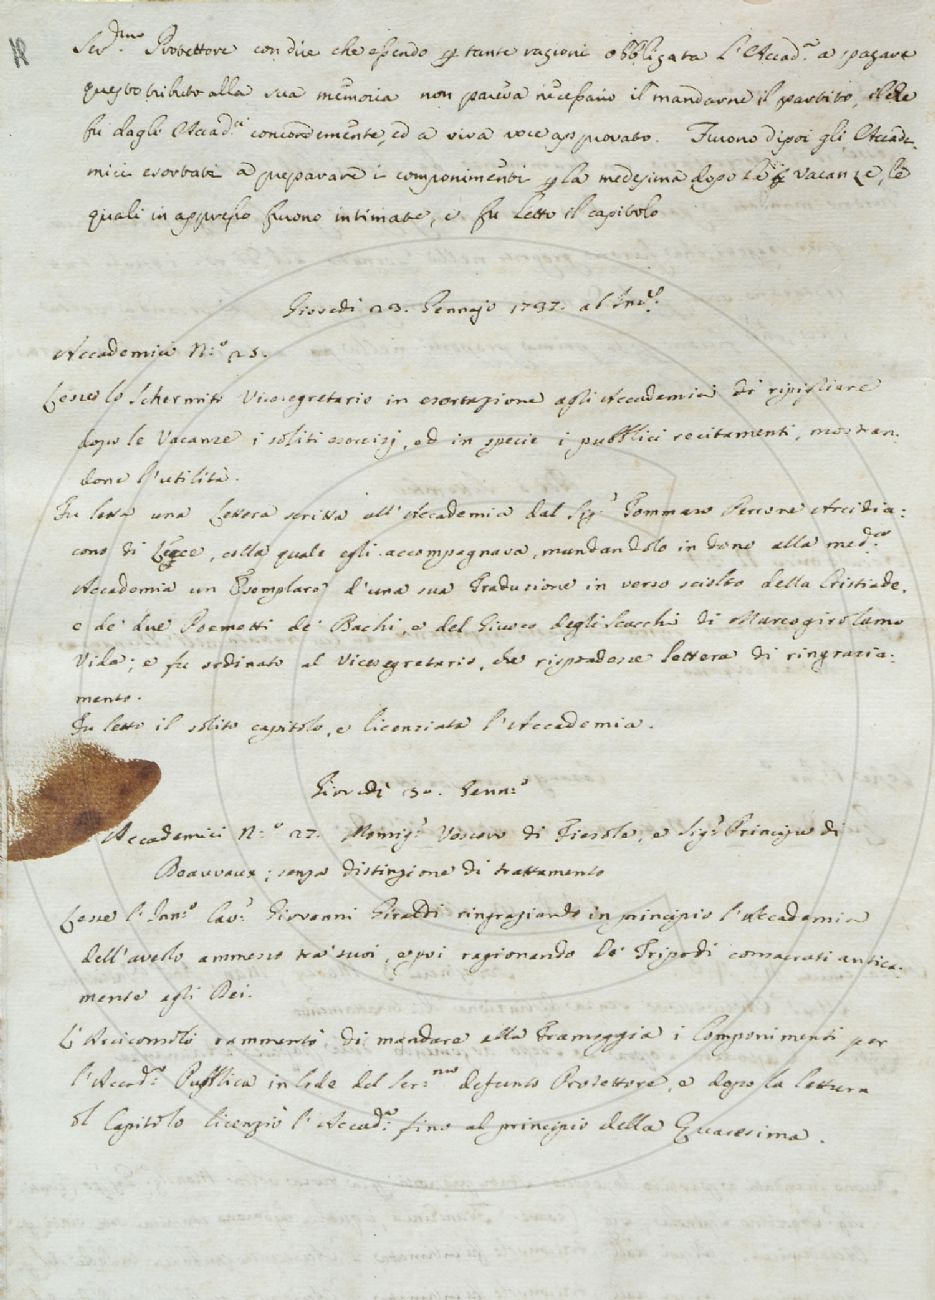 Ser.mo Protettore con dire che essendo p tante ragioni obbligata l'Accad.a a pagare
questo tributo alla sua memoria non pareva necessario il mandarne il partito, il che
fu dagli Accad.ci concordemente, ed a viva voce approvato. Furono dipoi gli Accade-
mici esortati a preparare i componimenti p la medesima dopo le vacanze, le
quali in appresso furono intimate, e fu letto il capitolo
Giovedì 23. Gennajo 1737. ab Inc.e
Accademici N.o 25.
Lesse lo Schermito Vicesegretario in esortazione agli Accademici di ripigliare
dopo le Vacanze i soliti esercizj, ed in specie i pubblici recitamenti, mostran-
done l'utilità.
Fu letta una Lettera scritta all'Accademia dal Sig.r Tommaso Perrone Arcidia-
cono di Lecce, colla quale egli accompagnava, mandandolo in dono alla med.a
Accademia un Esemplare d'una sua Traduzione in verso sciolto della Cristiade,
e de' due Poemetti de' Bachi, e del Giuoco degli Scacchi di Marcogirolamo
Vida; e fu ordinato al Vicesegretario, che rispondesse lettera di ringrazia-
mento.
Fu letto il solito capitolo, e licenziata l'Accademia.
Giovedì 30. Genn.o
Accademici N.o 27. Monsig.r Vescovo di Fiesole, e Sig.r Principe di
Beauvaux; senza distinzione di trattamento
Lesse l'Inn.o Cav.r Giovanni Giraldi ringraziando in principio l'Accademia
dell'averlo ammesso tra' suoi, e poi ragionando de' Tripodi consacrati antica-
mente agli Dei.
L'Arciconsolo rammentò di mandare alla Tramoggia i Componimenti per
l'Accad.a Pubblica in lode del Ser.mo defunto Protettore, e dopo la lettura
del Capitolo licenziò l'Accad.a fino al principio della Quaresima.